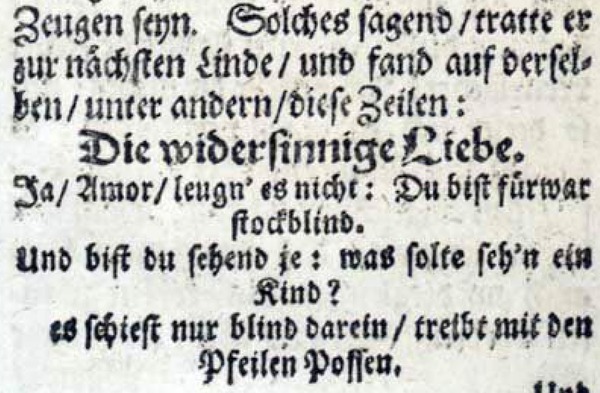 Zeugen seyn. Solches sagend / tratte er
zur nächsten Linde / und fand auf dersel-
ben / unter andern / diese Zeilen:
Die widersinnige Liebe.
Ja / Amor / leugn' es nicht: Du bist fürwar
stockblind.
Und bist du sehend je: was solte seh'n ein
Kind?
es schiest nur blind darein / treibt mit den
Pfeilen Possen.
Und